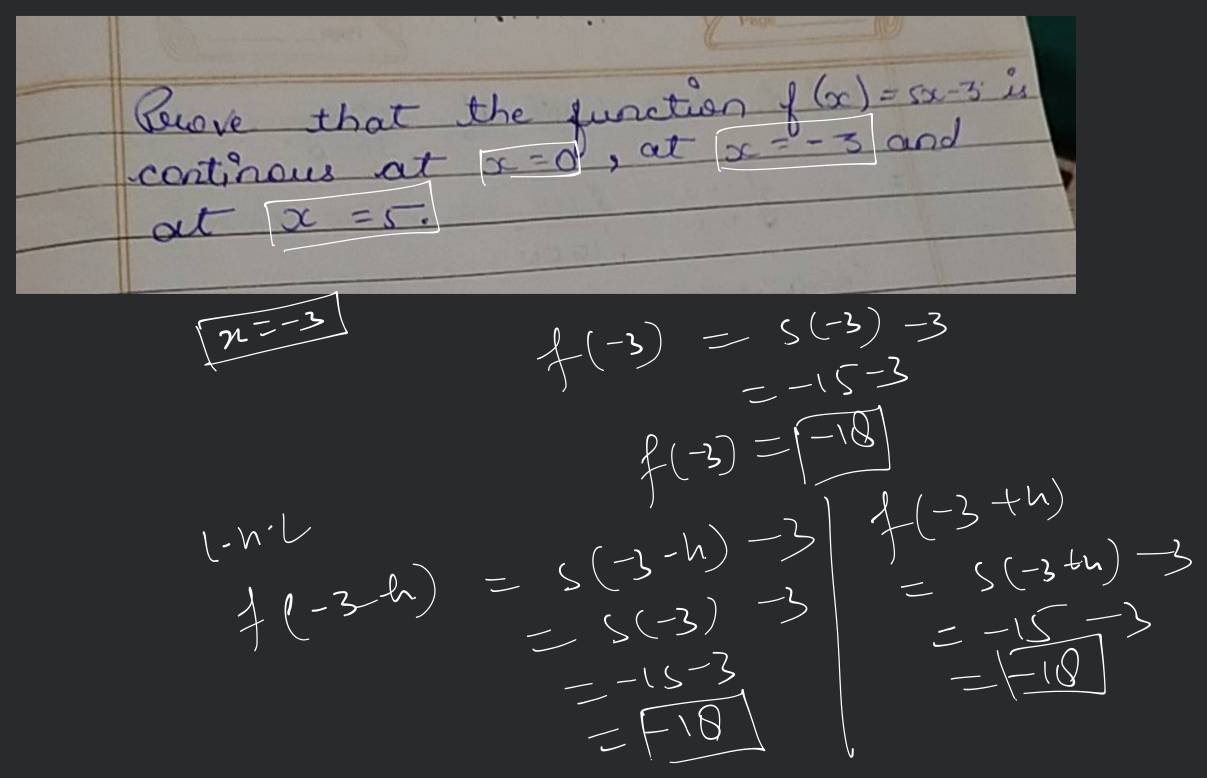 Prove that the function f(x) = 5x-3 is
continous at x=0, at x=-3 and
at x = 5.
x=-3
f(-3) = 5(-3) -3
= -15-3
f(-3) = -18
L.h.L
f(-3-h) = 5(-3-h) -3
= 5(-3) -3
= -15-3
= -18
f(-3+h)
= 5(-3+h) -3
= -15 -3
= -18